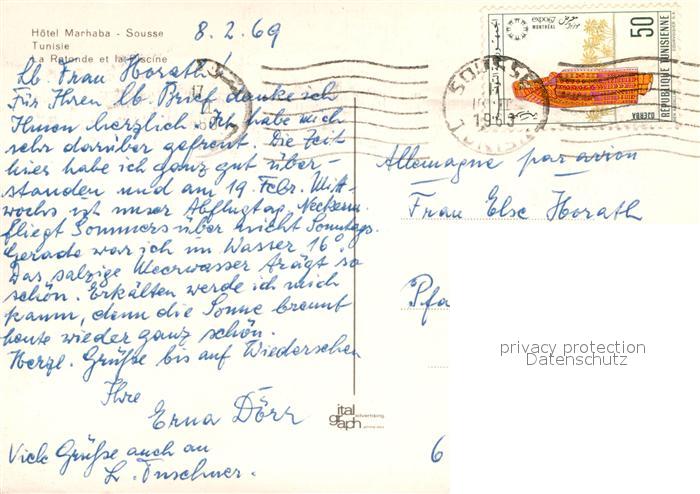 Hôtel Marhaba - Sousse
Tunisie
La Rotonde et la Piscine
8.2.69
Lb. Frau Horath!
Für Ihren lb. Brief danke ich
Ihnen herzlich. Ich habe mich
sehr darüber gefreut. Die Zeit
hier habe ich ganz gut über-
standen und am 19. Febr. Mitt-
wochs ist unser Abflugtag. Neckerm.
fliegt Sommers über nicht Sonntags.
Gerade war ich im Wasser 16°.
Das salzige Meerwasser trägt so
schön. Erkälten werde ich mich
kaum, denn die Sonne brennt
heute wieder ganz schön.
Herzl. Grüße bis auf Wiedersehen
Ihre
Erna Dörr
Viele Grüße auch an
ital
graph
advertising
expo67
MONTREAL
50
REPUBLIQUE TUNISIENNE
DJERBA
SOUSSE
Allemagne par avion
Frau Else Horath
Pfa
6
privacy protection
Datenschutz